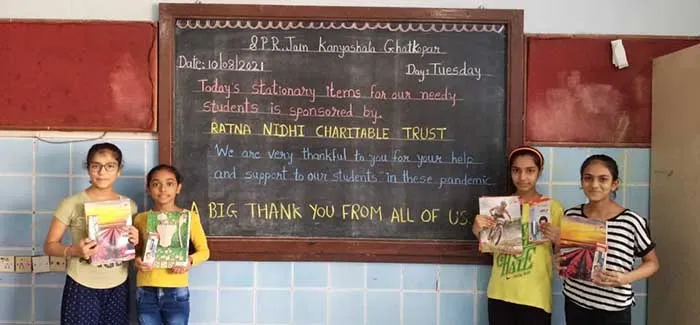 S.P.R. Jain Kanyashala Ghatkopar
Date: 10/08/2021
Day: Tuesday
Today's stationary items for our needy
students is sponsored by.
RATNA NIDHI CHARITABLE TRUST
We are very thankful to you for your help
and support to our students in these pandemic
A BIG THANK YOU FROM ALL OF US